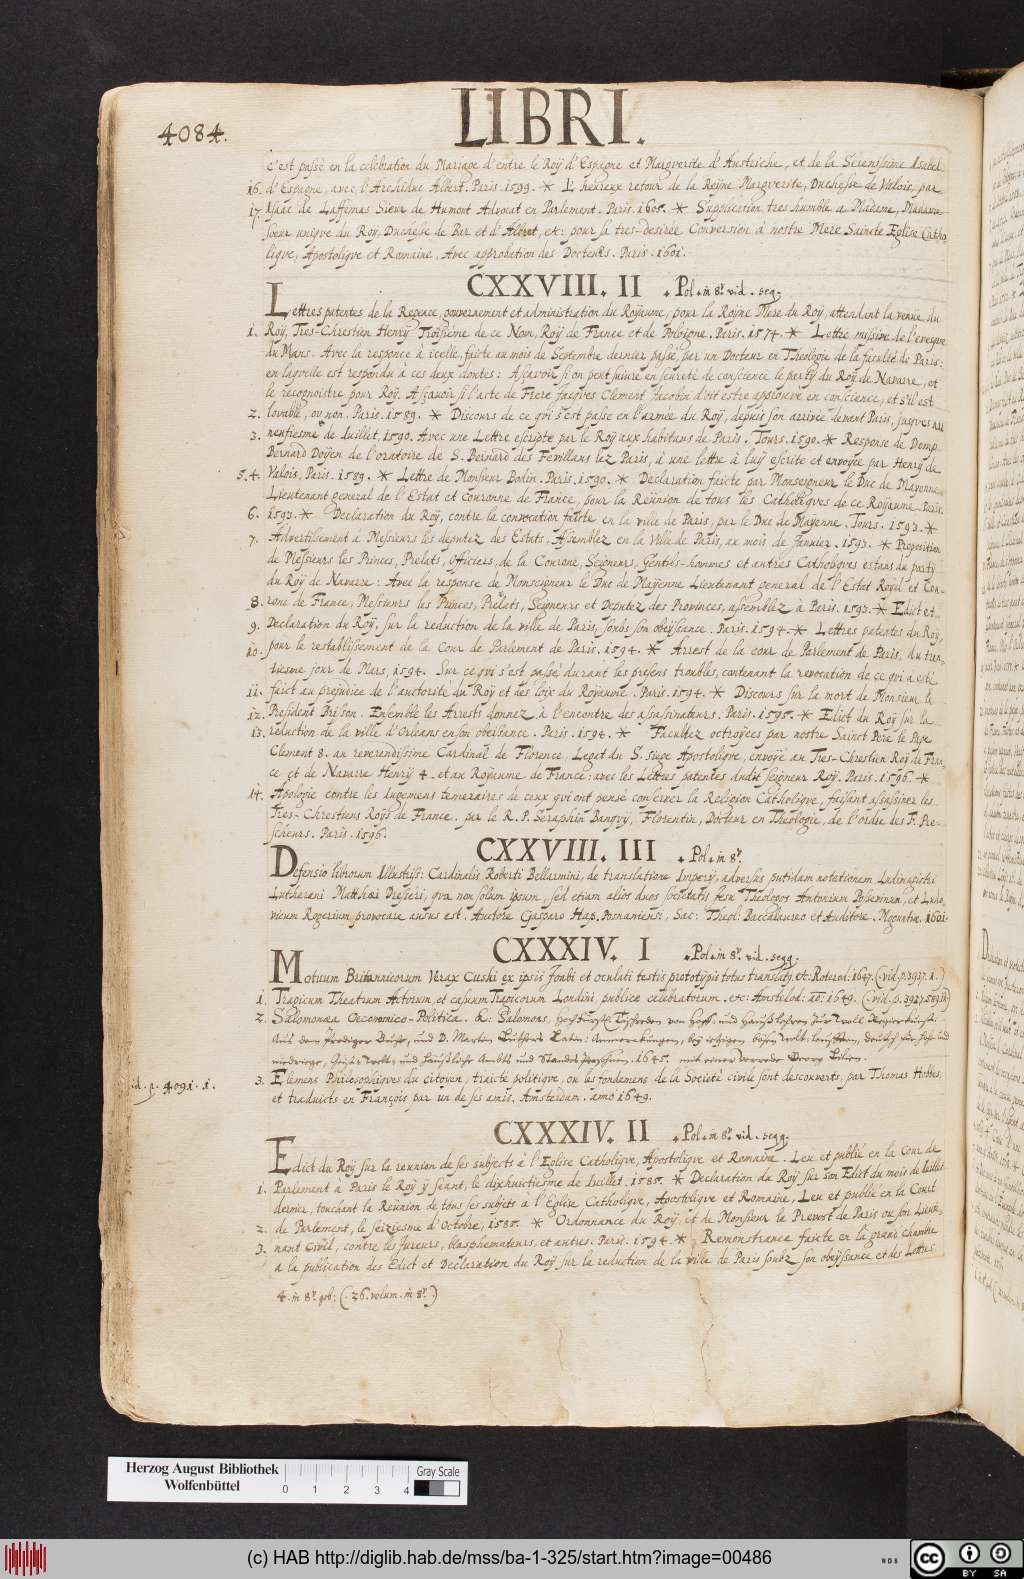 4084.
LIBRI.
c'est passé en la celebration du Mariage d'entre le Roÿ d'Espagne et Marguerite d'Austriche, et de la Serenissime Isabel
16. d'Espagne, avec l'Archiduc Albert. Paris. 1599. * L'heureux retour de la Reÿne Marguerite, Duchesse de Valois, par
17. Isaac de Laffemas Sieur de Humont Advocat en Parlement. Paris. 1605. * Supplication tres humble a Madame, Madame
soeur unique du Roy, Duchesse de Bar et d'Albret, etc. pour sa tres-desirée Conversion à nostre Mere Saincte Eglise Catho
lique, Apostolique et Romaine, Avec approbation des Docteurs. Paris. 1601.
CXXVIII. II . Pol. in 8º. vid. seq.
Lettres patentes de la Regence, gouvernement et administration du Roÿaume, pour la Roÿne Mere du Roÿ, attendant la venue du
1. Roÿ, Tres-Chrestien Henrÿ Troisiéme de ce Nom, Roÿ de France et de Pologne. Paris. 1574. * Lettre missive de l'evesque
du Mans. Avec la responce à icelle, faicte au mois de Septembre dernier passé, par un Docteur en Theologie de la faculté de Paris:
en laquelle est respondu à ces deux doutes: Asçavoir si on peut suivre en seureté de conscience le party du Roy de Navarre, et
le recognoistre pour Roÿ. Asçavoir si l'acte de Frere Jacques Clement Jacobin doit estre approuvé en conscience, et s'il est
2. lovable, ou non. Paris. 1589. * Discours de ce qui s'est passe en l'armée du Roÿ, depuis son arrivee devant Paris, jusques au
3. neufiesme de Juillet, 1590. Avec une Lettre escripte par le Roÿ aux habitans de Paris. Tours. 1590. * Response de Domp
Bernard Doÿen de l'oratoire de S. Bernard des Fevillans lez Paris, à une lettre à luÿ escrite et envoÿee par Henrÿ de
5.4. Valois, Paris. 1589. * Lettre de Monsieur Bodin. Paris. 1590. * Declaration faicte par Monseigneur le Duc de Mayenne
Lieutenant general de l'Estat et Couronne de France, pour la Reünion de tous les Catholiques de ce Roÿaume. Paris.
6. 1593. * Declaration du Roÿ, contre la convocation faicte en la ville de Paris, par le Duc de Mayenne. Tours. 1593. *
7. Advertissement à Messieurs les deputez des Estats, Assemblez en la Ville de Paris, au mois de Janvier. 1593. * Proposition
de Messieurs les Princes, Prelats, Officiers, de la Courone, Segneurs, Gentils-hommes et autres Catholiques estans du party
du Roÿ de Navarre: Avec la response de Monseigneur le Duc de Maÿenne Lieutenant general de l'Estat Royal et Cou-
8. rone de France, Messieurs les Princes, Prelats, Segneurs et Deputez des Provinces, assemblez à Paris. 1593. * Edict et
9. Declaration du Roÿ, sur la reduction de la ville de Paris, soubs son obeÿssance. Paris. 1594. * Lettres patentes du Roÿ,
10. pour le restablissement de la Cour de Parlement de Paris. 1594. * Arrest de la cour de Parlement de Paris, du tren-
tiesme jour de Mars, 1594. Sur ce qui s'est passé durant les presens troubles, contenant la revocation de ce qui a esté
11. faict au prejudice de l'auctorité du Roÿ et des loix du Royaume. Paris. 1594. * Discours sur la mort de Monsieur le
12. President Brisson. Ensemble les Arrests donnez à l'encontre des assassinateurs. Paris. 1595. * Edict du Roÿ sur la
13. reduction de la ville d'Orleans en son obeissance. Paris. 1594. * Facultez octroÿees par nostre Sainct Pere le Pape
Clemant 8. au reverendissime Cardinal de Florence, Legat du S. siege Apostolique, envoÿé au Tres-Chrestien Roÿ de Fran-
ce et de Navarre Henrÿ 4. et au Roÿaume de France: avec les Lettres patentes dudit seigneur Roÿ. Paris. 1596. *
14. Apologie contre les Jugement temeraires de ceux qui ont pensé conserver la Religion Catholique, faisant assassiner les
Tres-Chrestiens Roÿs de France. par le R. P. Seraphin Banquÿ, Florentin, Docteur en Theologie, de l'ordre des F. Pre-
scheurs. Paris. 1596.
CXXVIII. III . Pol. in 8º.
Defensio librorum Illustriss: Cardinalis Roberti Bellarmini, de translatione Imperÿ, adversus putidam notationem Ludimagistri
Lutherani Matthaei Dresseri, qua non solum ipsum, sed etiam alios duos societatis Jesu Theologos Antonium Possevinum, et Ludo-
vicum Rogerium provocare ausus est. Auctore Gasparo Hap. Posnaniensi, Sac: Theol: Baccalaureo et Auditore. Moguntiæ. 1601.
CXXXIV. I . Pol. in 8º. vid. seqq.
Motuum Britannicorum Verax Cushi ex ipsis Joabi et oculati testis prototÿpis totus translatq. etc. Roterod: 1647. (vid. p. 3927. 1.)
1. Tragicum Theatrum Actorum, et casuum Tragicorum Londini publice celebratorum. etc: Amstelod: aõ: 1649. (vid. p. 3927.
2. Salomonæa Oeconomico-Politica. K. Salomons,
Aus dem Prediger Buche, und D. Martin Luthers Latin: Annmerckungen,
und Standes Personen. 1645. mit einer Vorrede Georg
id. p. 4091. 1.
3. Elemens Philosophiques du citoyen, traicté politique, ou les fondemens de la Societé civile sont descouverts, par Thomas Hobbes,
et traduicts en François par un de ses amis. Amsterdam. anno 1649.
CXXXIV. II . Pol. in 8º. vid. seqq.
Edict du Roÿ sur la reunion de ses subjects à l'Eglise Catholique, Apostolique et Romaine. Leu et publié en la Cour de
1. Parlement à Paris le Roÿ ÿ seant, le dixhuictiesme de Juillet. 1585. * Declaration du Roÿ sur son Edict du mois de Juillet
dernier, touchant la Reünion de tous ses subjets à l'Eglise Catholique, Apostolique et Romaine, Leu et publié en la Court
2. de Parlement, le seiziesme d'Octobre, 1585. * Ordonnance du Roÿ, et de Monsieur le Prevost de Paris ou son Lieute-
3. nant Civil, contre les Jureurs, blasphemateurs, et autres. Paris. 1594. * Remonstrance faicte en la grand Chambre
a la publication des Edict et Declaration du Roÿ sur la reduction de la ville de Paris soubz son obeÿssance et des Lettres
4. in 8º. (. 26. volum. in 8º.)
Herzog August Bibliothek
Wolfenbüttel
0 1 2 3 4
Gray Scale
(c) HAB http://diglib.hab.de/mss/ba-1-325/start.htm?image=00486
WDB
cc BY SA